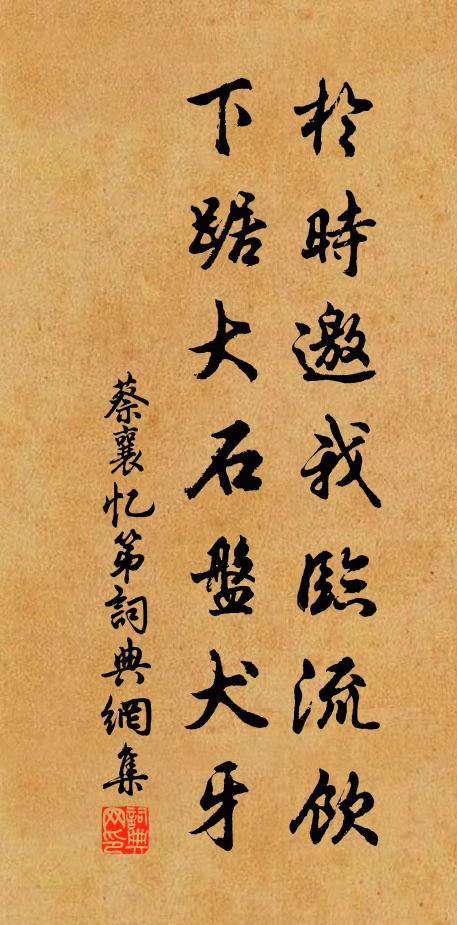 於時邀我臨流飲
下踞大石盤犬牙
蔡襄忆第詞典網集
詞典網印